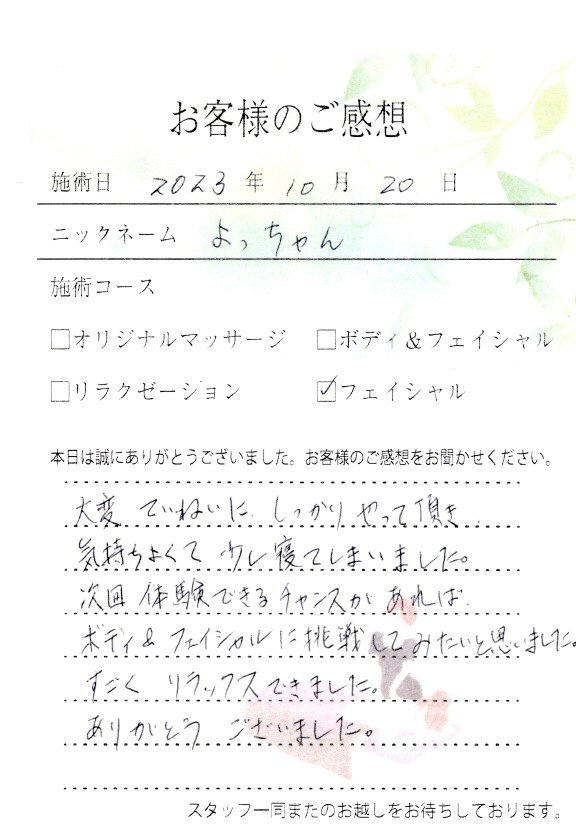 お客様のご感想
施術日 2023 年 10 月 20 日
ニックネーム よっちゃん
施術コース
□オリジナルマッサージ □ボディ&フェイシャル
□リラクゼーション ☑フェイシャル
本日は誠にありがとうございました。お客様のご感想をお聞かせください。
大変 ていねいに しっかり やって頂き
気持ちよくて 少し寝てしまいました。
次回 体験できるチャンスがあれば
ボディ&フェイシャルに挑戦してみたいと思いました。
すごく リラックスできました。
ありがとう ございました。
スタッフ一同またのお越しをお待ちしております。